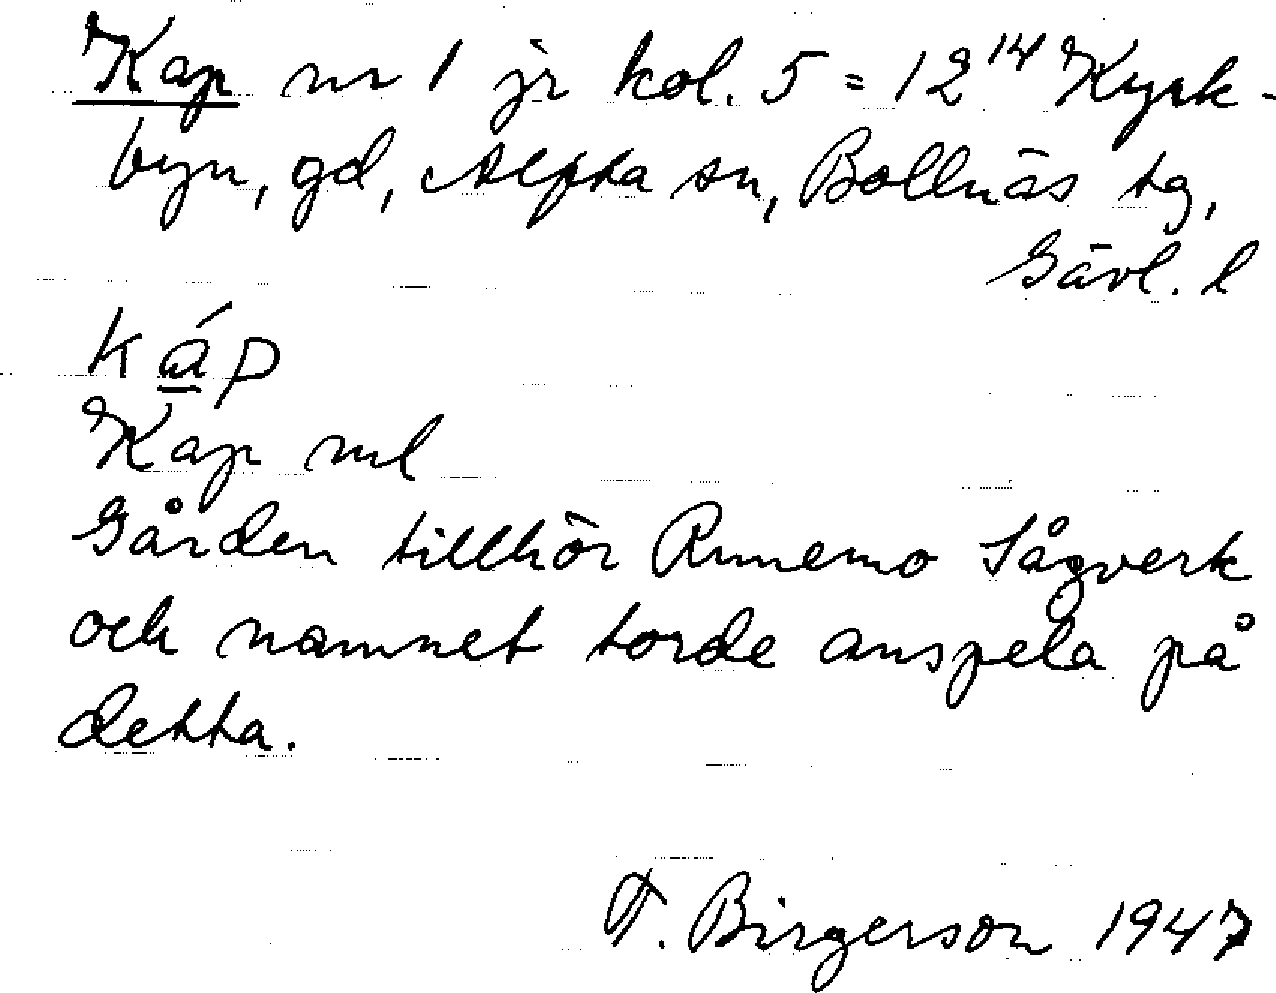 Kap nr 1 jr kol. 5 = 12¹⁴ Kyrk-
byn, gd, Alfta sn, Bollnäs tg,
Gävl. l
káp
Kap ml
Gården tillhör Runemo Sågverk
och namnet torde anspela på
detta.
F. Birgerson 1947